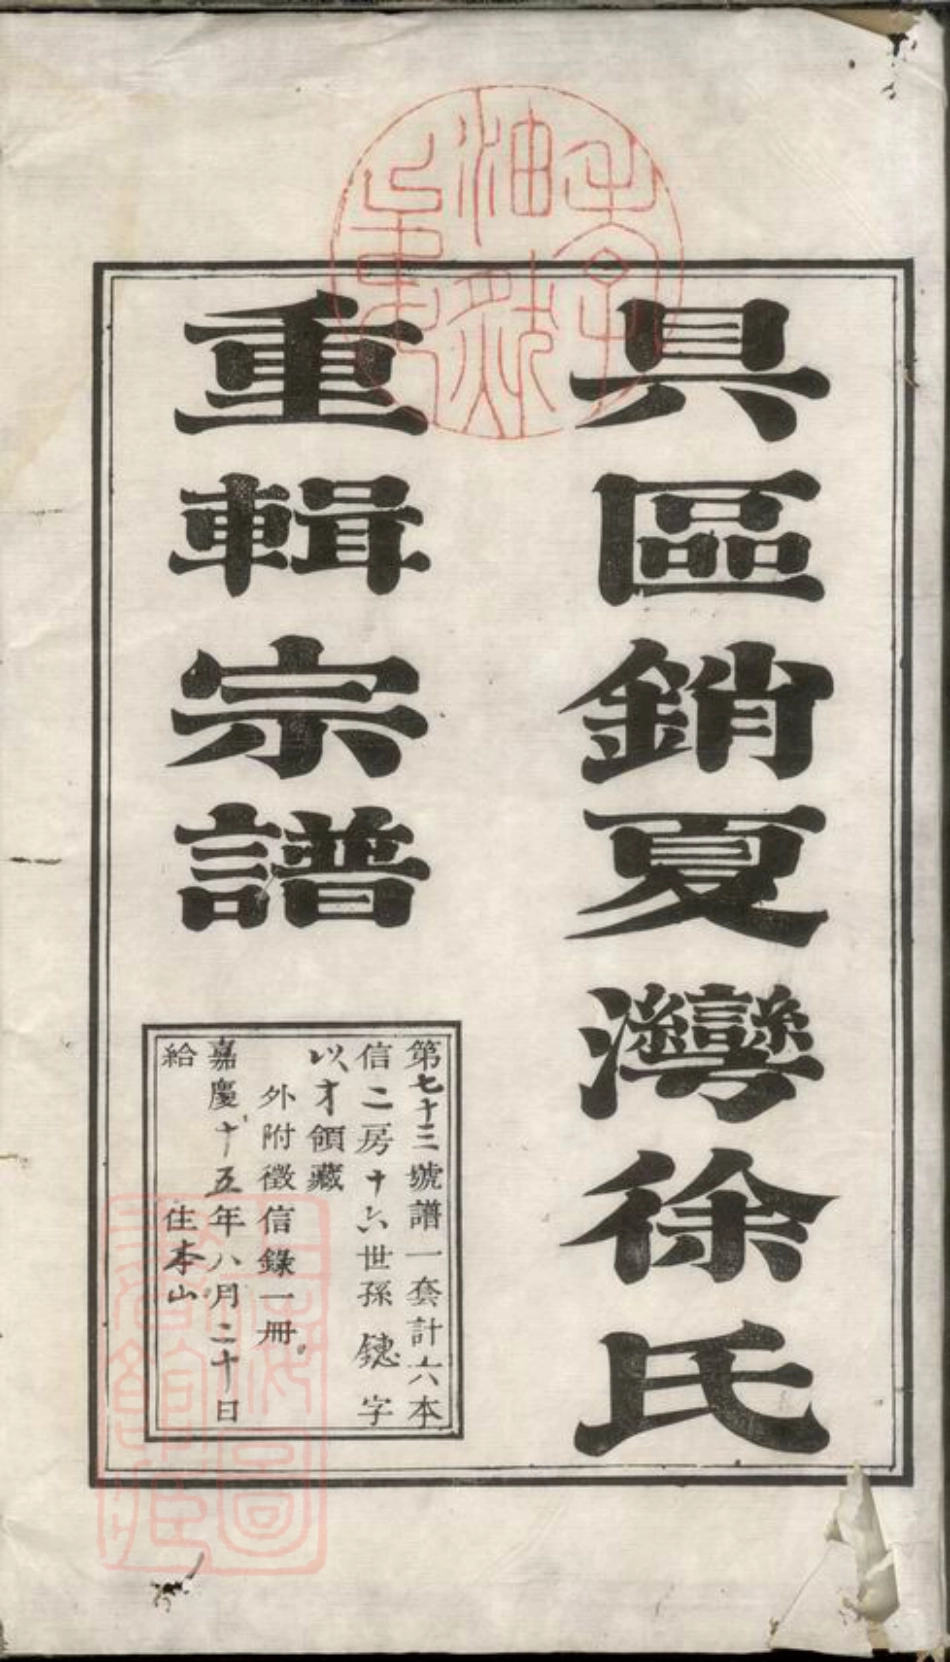 具區銷夏灣徐氏
重輯宗譜
第七十三號譜一套計六本
信二房十六世孫鏸字
以才領藏
外附徵信錄一冊
嘉慶十五年八月二十日
給 住本山
上海圖
書館藏